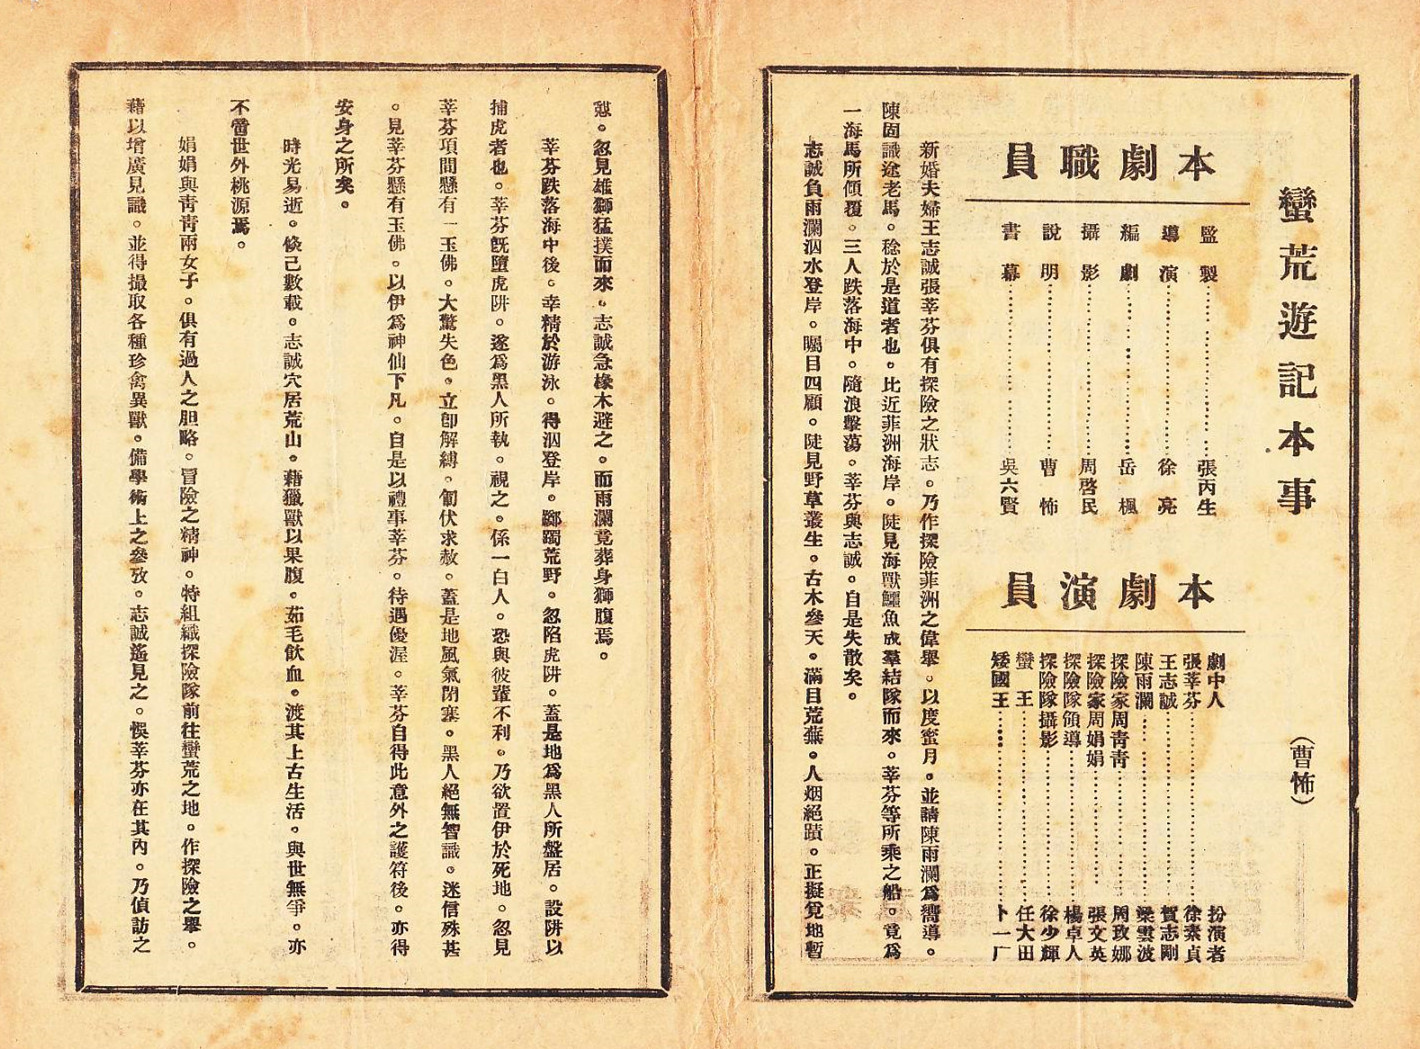 蠻荒遊記本事
（曹怖）
本劇職員
監製……張丙生
導演……徐亮
編劇……岳楓
攝影……周啓民
說明……曹怖
書幕……吳六賢
本劇演員
劇中人 扮演者
張莘芬……徐素貞
王志誠……賀志剛
陳雨瀾……梁雲波
探險家周靑靑……周玫娜
探險家周娟娟……張文英
探險隊領導……楊卓人
探險隊攝影……徐少輝
蠻王……任大田
矮國王……卜一厂
新婚夫婦王志誠張莘芬俱有探險之狀志。乃作探險菲洲之偉舉。以度蜜月。並請陳雨瀾爲嚮導。
陳固識途老馬。稔於是道者也。比近菲洲海岸。陡見海獸鱷魚成羣結隊而來。莘芬等所乘之船。竟爲
一海馬所傾覆。三人跌落海中。隨浪擊蕩。莘芬與志誠。自是失散矣。
志誠負雨瀾泅水登岸。矚目四顧。陡見野草叢生。古木參天。滿目荒蕪。人烟絕蹟。正擬覓地暫
憇。忽見雄獅猛撲而來。志誠急椽木避之。而雨瀾竟葬身獅腹焉。
莘芬跌落海中後。幸精於游泳。得泅登岸。躑躅荒野。忽陷虎阱。蓋是地爲黑人所盤居。設阱以
捕虎者也。莘芬旣墮虎阱。遂爲黑人所執。視之。係一白人。恐與彼輩不利。乃欲置伊於死地。忽見
莘芬項間懸有一玉佛。大驚失色。立卽解縛。匍伏求赦。蓋是地風氣閉塞。黑人絕無智識。迷信殊甚
。見莘芬懸有玉佛。以伊爲神仙下凡。自是以禮事莘芬。待遇優渥。莘芬自得此意外之護符後。亦得
安身之所矣。
時光易逝。倐己數載。志誠穴居荒山。藉獵獸以果腹。茹毛飮血。渡其上古生活。與世無爭。亦
不啻世外桃源焉。
娟娟與靑靑兩女子。俱有過人之胆略。冒險之精神。特組織探險隊前往蠻荒之地。作探險之舉。
藉以增廣見識。並得撮取各種珍禽異獸。備學術上之參攷。志誠遙見之。悞莘芬亦在其內。乃偵訪之